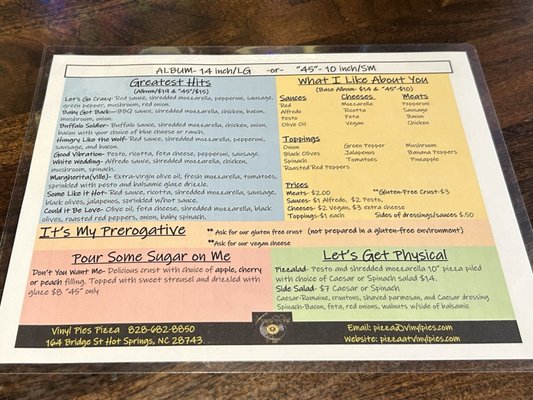 ALBUM- 14 inch/LG -or- "45"- 10 inch/SM
Greatest Hits
(Album/$19 & "45"/$15)
Let's Go Crazy- Red sauce, shredded mozzarella, pepperoni, sausage,
green pepper, mushroom, red onion.
Baby Got Back- BBQ sauce, shredded mozzarella, chicken, bacon,
mushroom, onion.
Buffalo Soldier- Buffalo sauce, shredded mozzarella, chicken, onion,
bacon with your choice of blue cheese or ranch.
Hungry Like the Wolf- Red sauce, shredded mozzarella, pepperoni,
sausage, and bacon.
Good Vibration- Pesto, ricotta, feta cheese, pepperoni, sausage.
White Wedding- Alfredo sauce, shredded mozzarella, chicken,
mushroom, spinach.
Margherita(ville)- Extra-virgin olive oil, fresh mozzarella, tomatoes,
sprinkled with pesto and balsamic glaze drizzle.
Some Like it Hot- Red sauce, ricotta, shredded mozzarella, sausage,
black olives, jalapenos, sprinkled w/hot sauce.
Could it Be Love- Olive oil, feta cheese, shredded mozzarella, black
olives, roasted red peppers, onion, baby spinach.
What I Like About You
(Base Album- $14 & "45"-$10)
Sauces Cheeses Meats
Red Mozzarella Pepperoni
Alfredo Ricotta Sausage
Pesto Feta Bacon
Olive Oil Vegan Chicken
Toppings
Onion Green Pepper Mushroom
Black Olives Jalapenos Banana Peppers
Spinach Tomatoes Pineapple
Roasted Red Peppers
Prices
Meats- $2.00 **Gluten-Free Crust-$3
Sauces- $1 Alfredo, $2 Pesto,
Cheeses- $2 Vegan, $3 extra cheese
Toppings-$1 each Sides of dressings/sauces $.50
It's My Prerogative
** Ask for our gluten free crust (not prepared in a gluten-free environment)
**Ask for our vegan cheese
Pour Some Sugar on Me
Don't You Want Me- Delicious crust with choice of apple, cherry
or peach filling. Topped with sweet streusel and drizzled with
glaze $8 "45" only
Let's Get Physical
Pizzalad- Pesto and shredded mozzarella 10" pizza piled
with choice of Caesar or Spinach salad $14.
Side Salad- $7 Caesar or Spinach
Caesar-Romaine, croutons, shaved parmesan, and Caesar dressing
Spinach-Bacon, feta, red onions, walnuts w/side of balsamic
Vinyl Pies Pizza 828-682-8850
164 Bridge St Hot Springs, NC 28743
Email: pizza@vinylpies.com
Website: pizzaatvinylpies.com